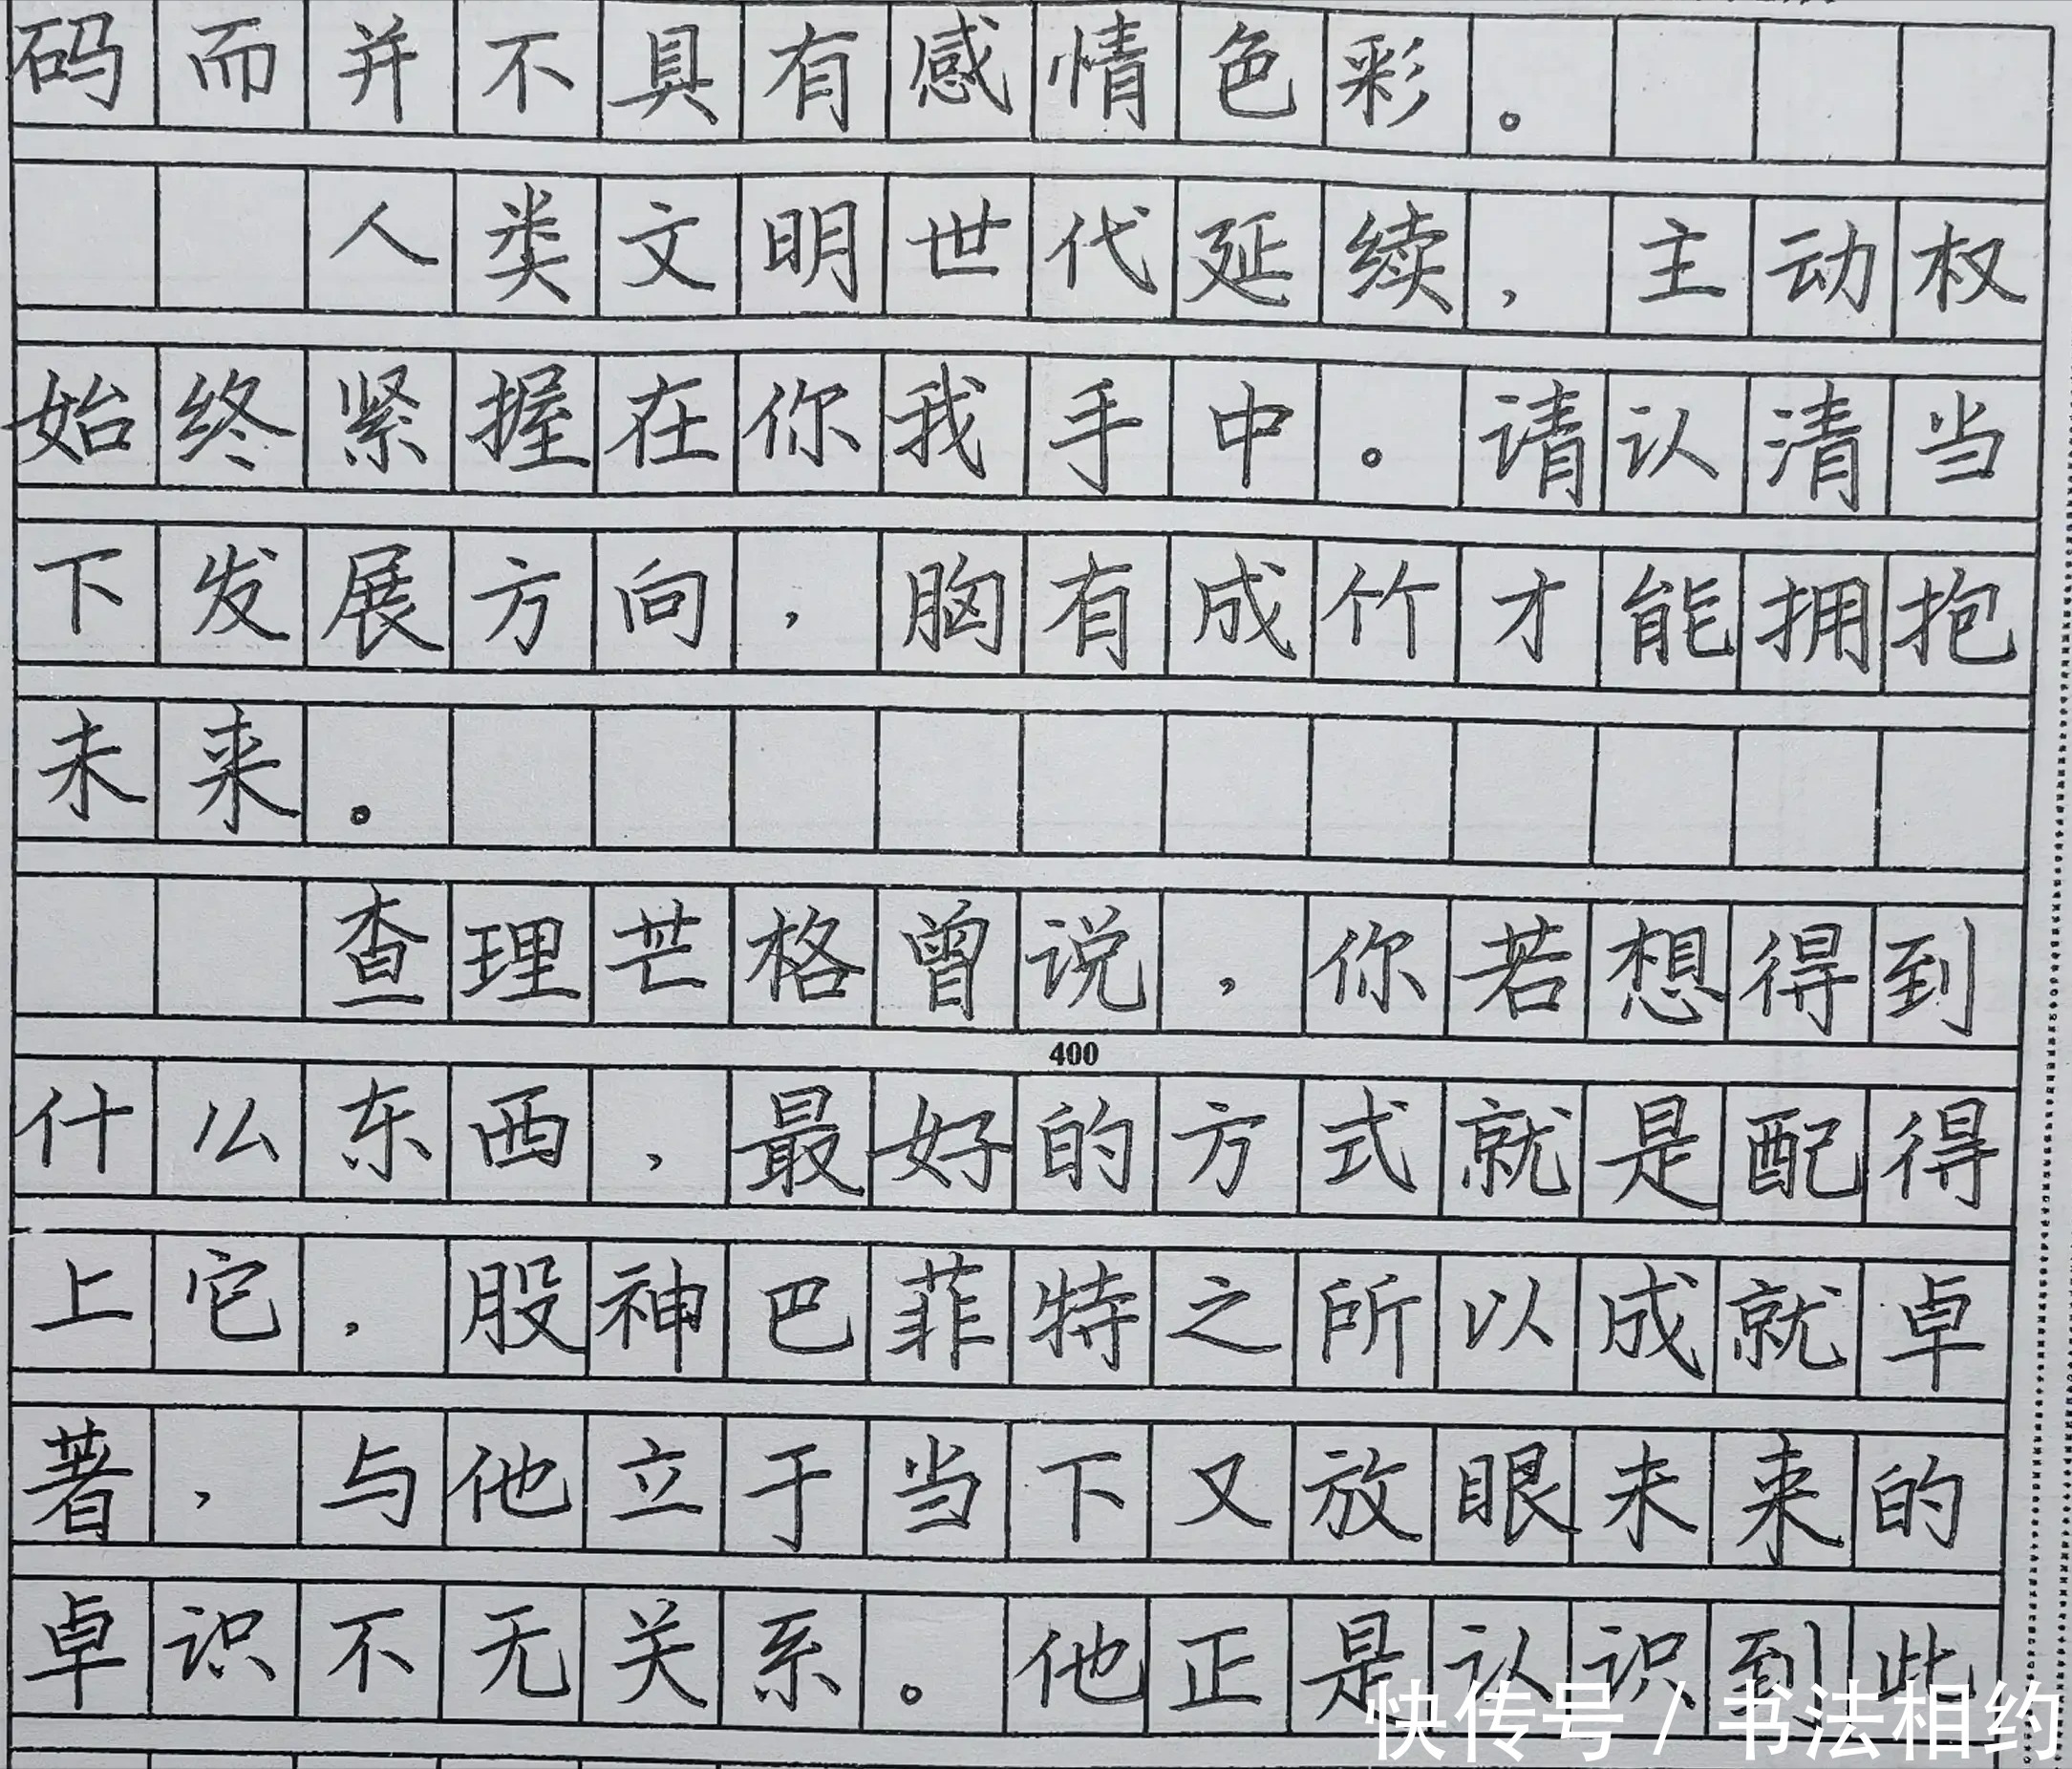 码而并不具有感情色彩。
人类文明世代延续，主动权
始终紧握在你我手中。请认清当
下发展方向，胸有成竹才能拥抱
未来。
查理芒格曾说，你若想得到
400
什么东西，最好的方式就是配得
上它，股神巴菲特之所以成就卓
著，与他立于当下又放眼未来的
卓识不无关系。他正是认识到此
快传号/书法相约